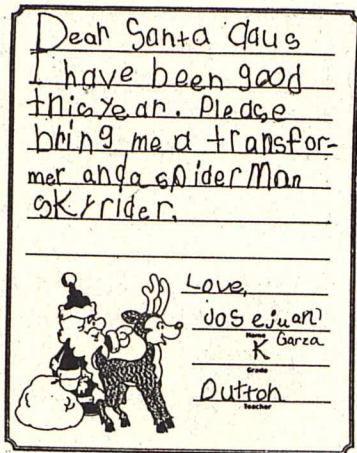 Dear Santa Claus
I have been good
this year. Please
bring me a transfor-
mer and a spider Man
skyrider.
Love,
Josejuan
Name
Garza
K
Grade
Dutton
Teacher